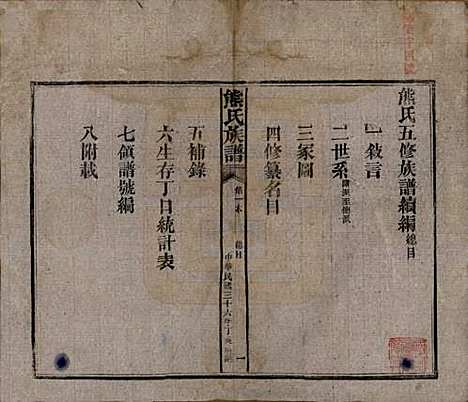 熊氏五修族譜續編 總目
一敍言
二世系
三冢圖
四修纂名目
熊氏族譜
總目
中華民國三十六年丁亥
一
五補錄
六生存丁口統計表
七領譜號編
八附載